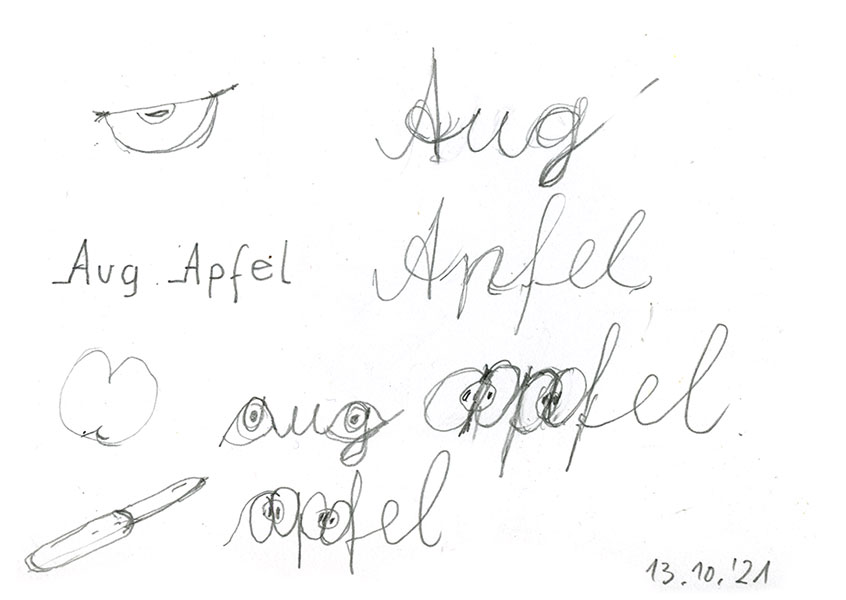 Aug'
Aug Apfel
Apfel
aug apfel
apfel
13.10.'21